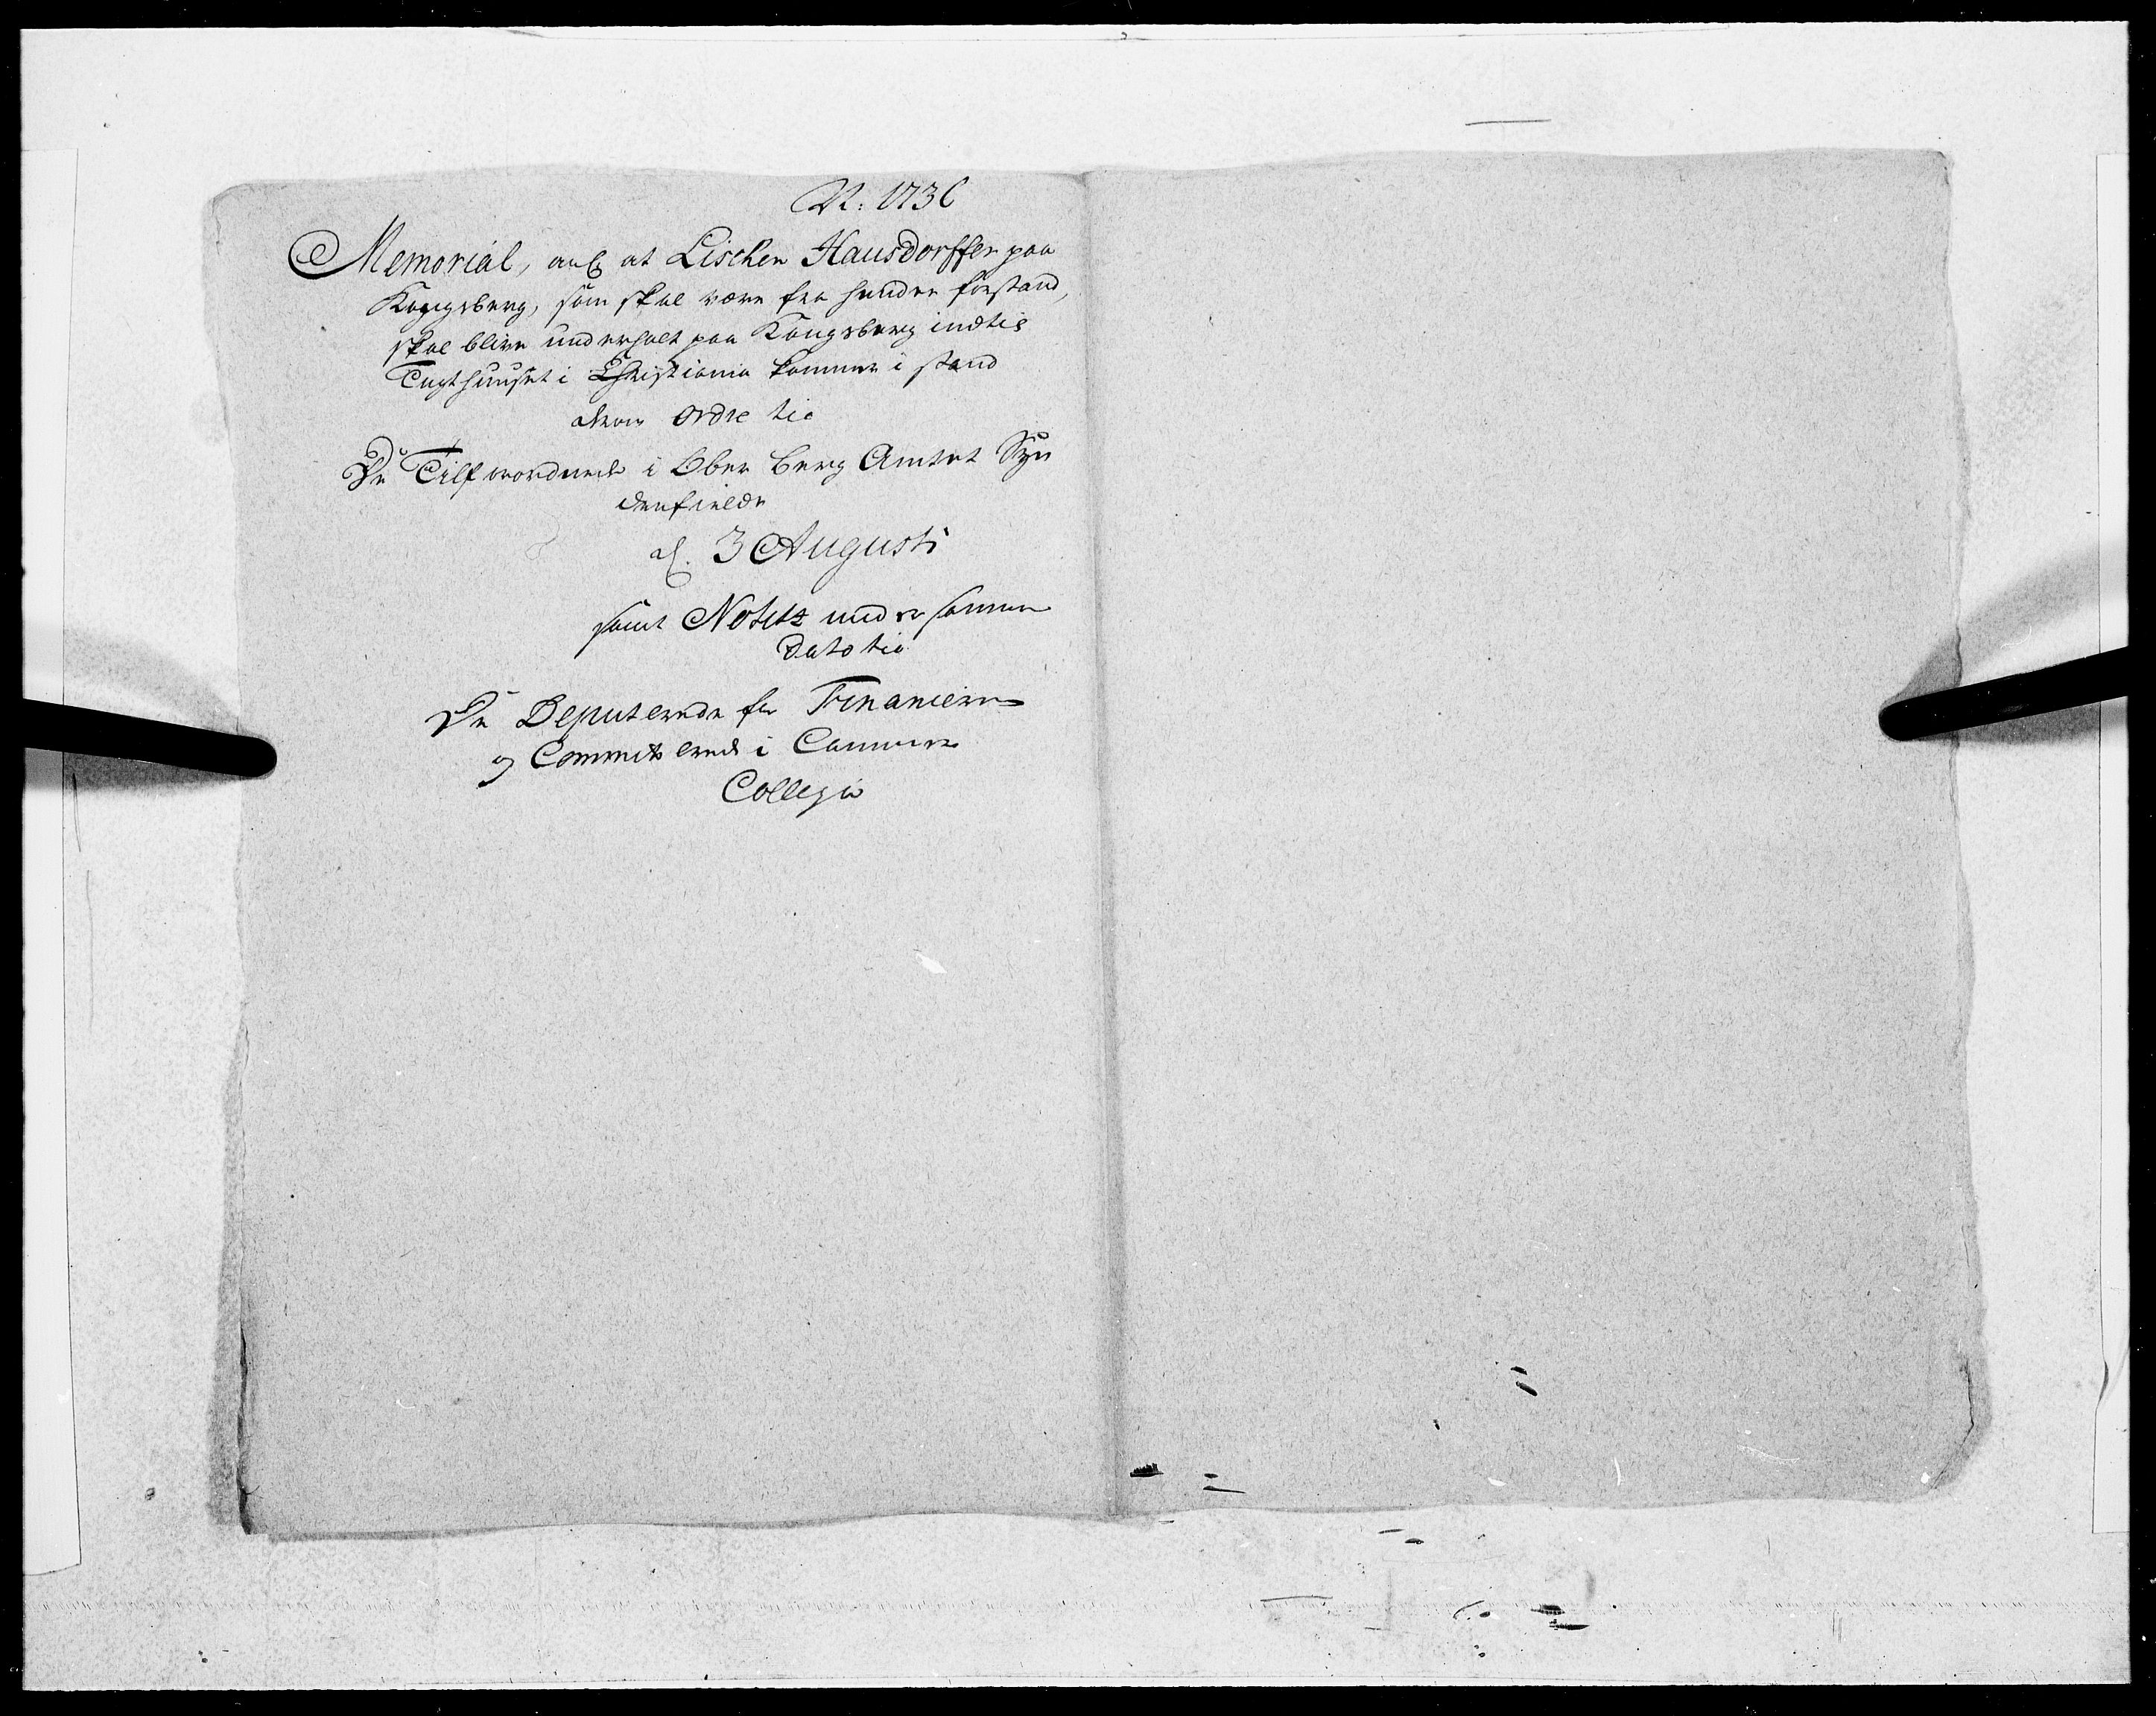 N: 1736
Memorial, ang at Lischen Hausdorffer paa
Kongsberg, som skal være fra hendes forstand,
skal blive underholt paa Kongsberg indtil
Tugthuuset i Christiania kommer i stand
derom Ordre til
De Tilforordnede i Ober Berg Amtet Syn
denfields
af. 3 Augusti
samt Notitz under samme
dato til
De Deputerede for Financierne
og Committerede i Cammer
Collegio